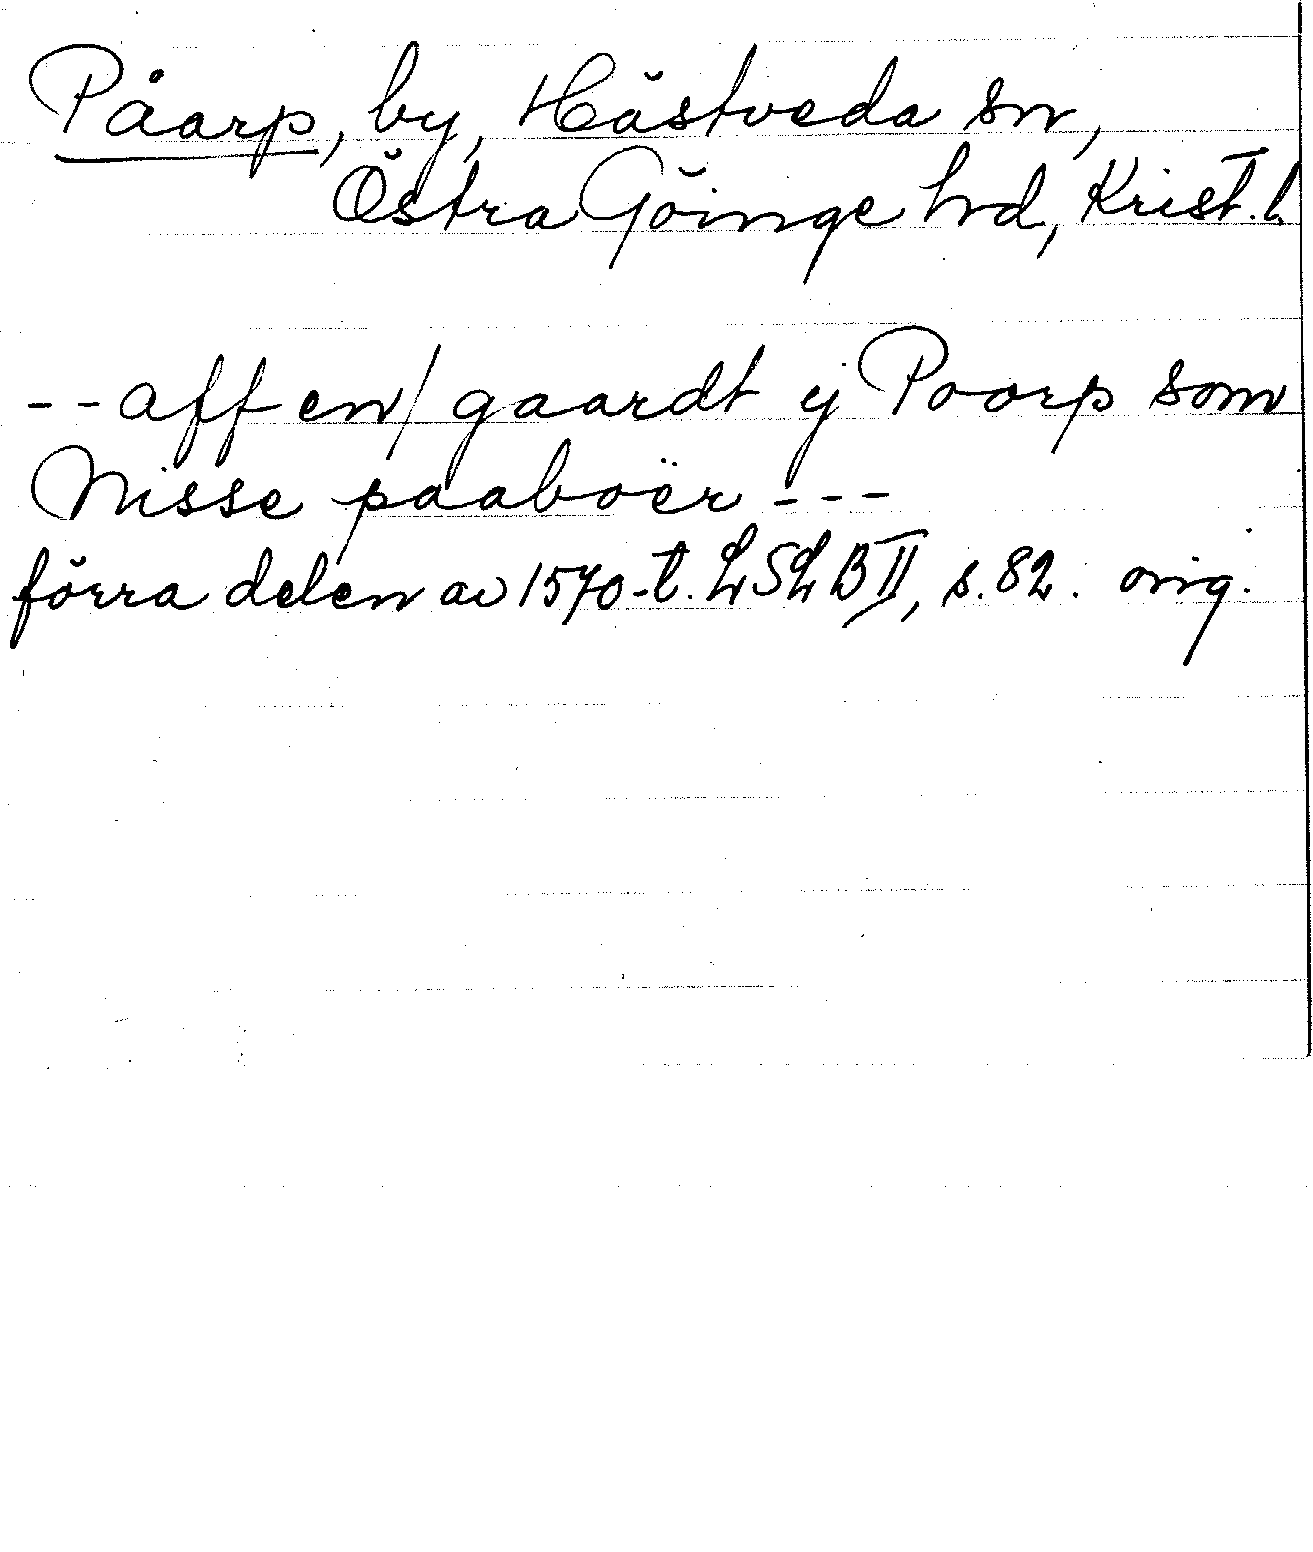 Påarp, by, Hästveda sn,
Östra Göinge hd, Krist. l.
-- aff en / gaardt ij Poorp som
Nisse paaboër ---
förra delen av 1570-t. LSLB II, s. 82. orig.